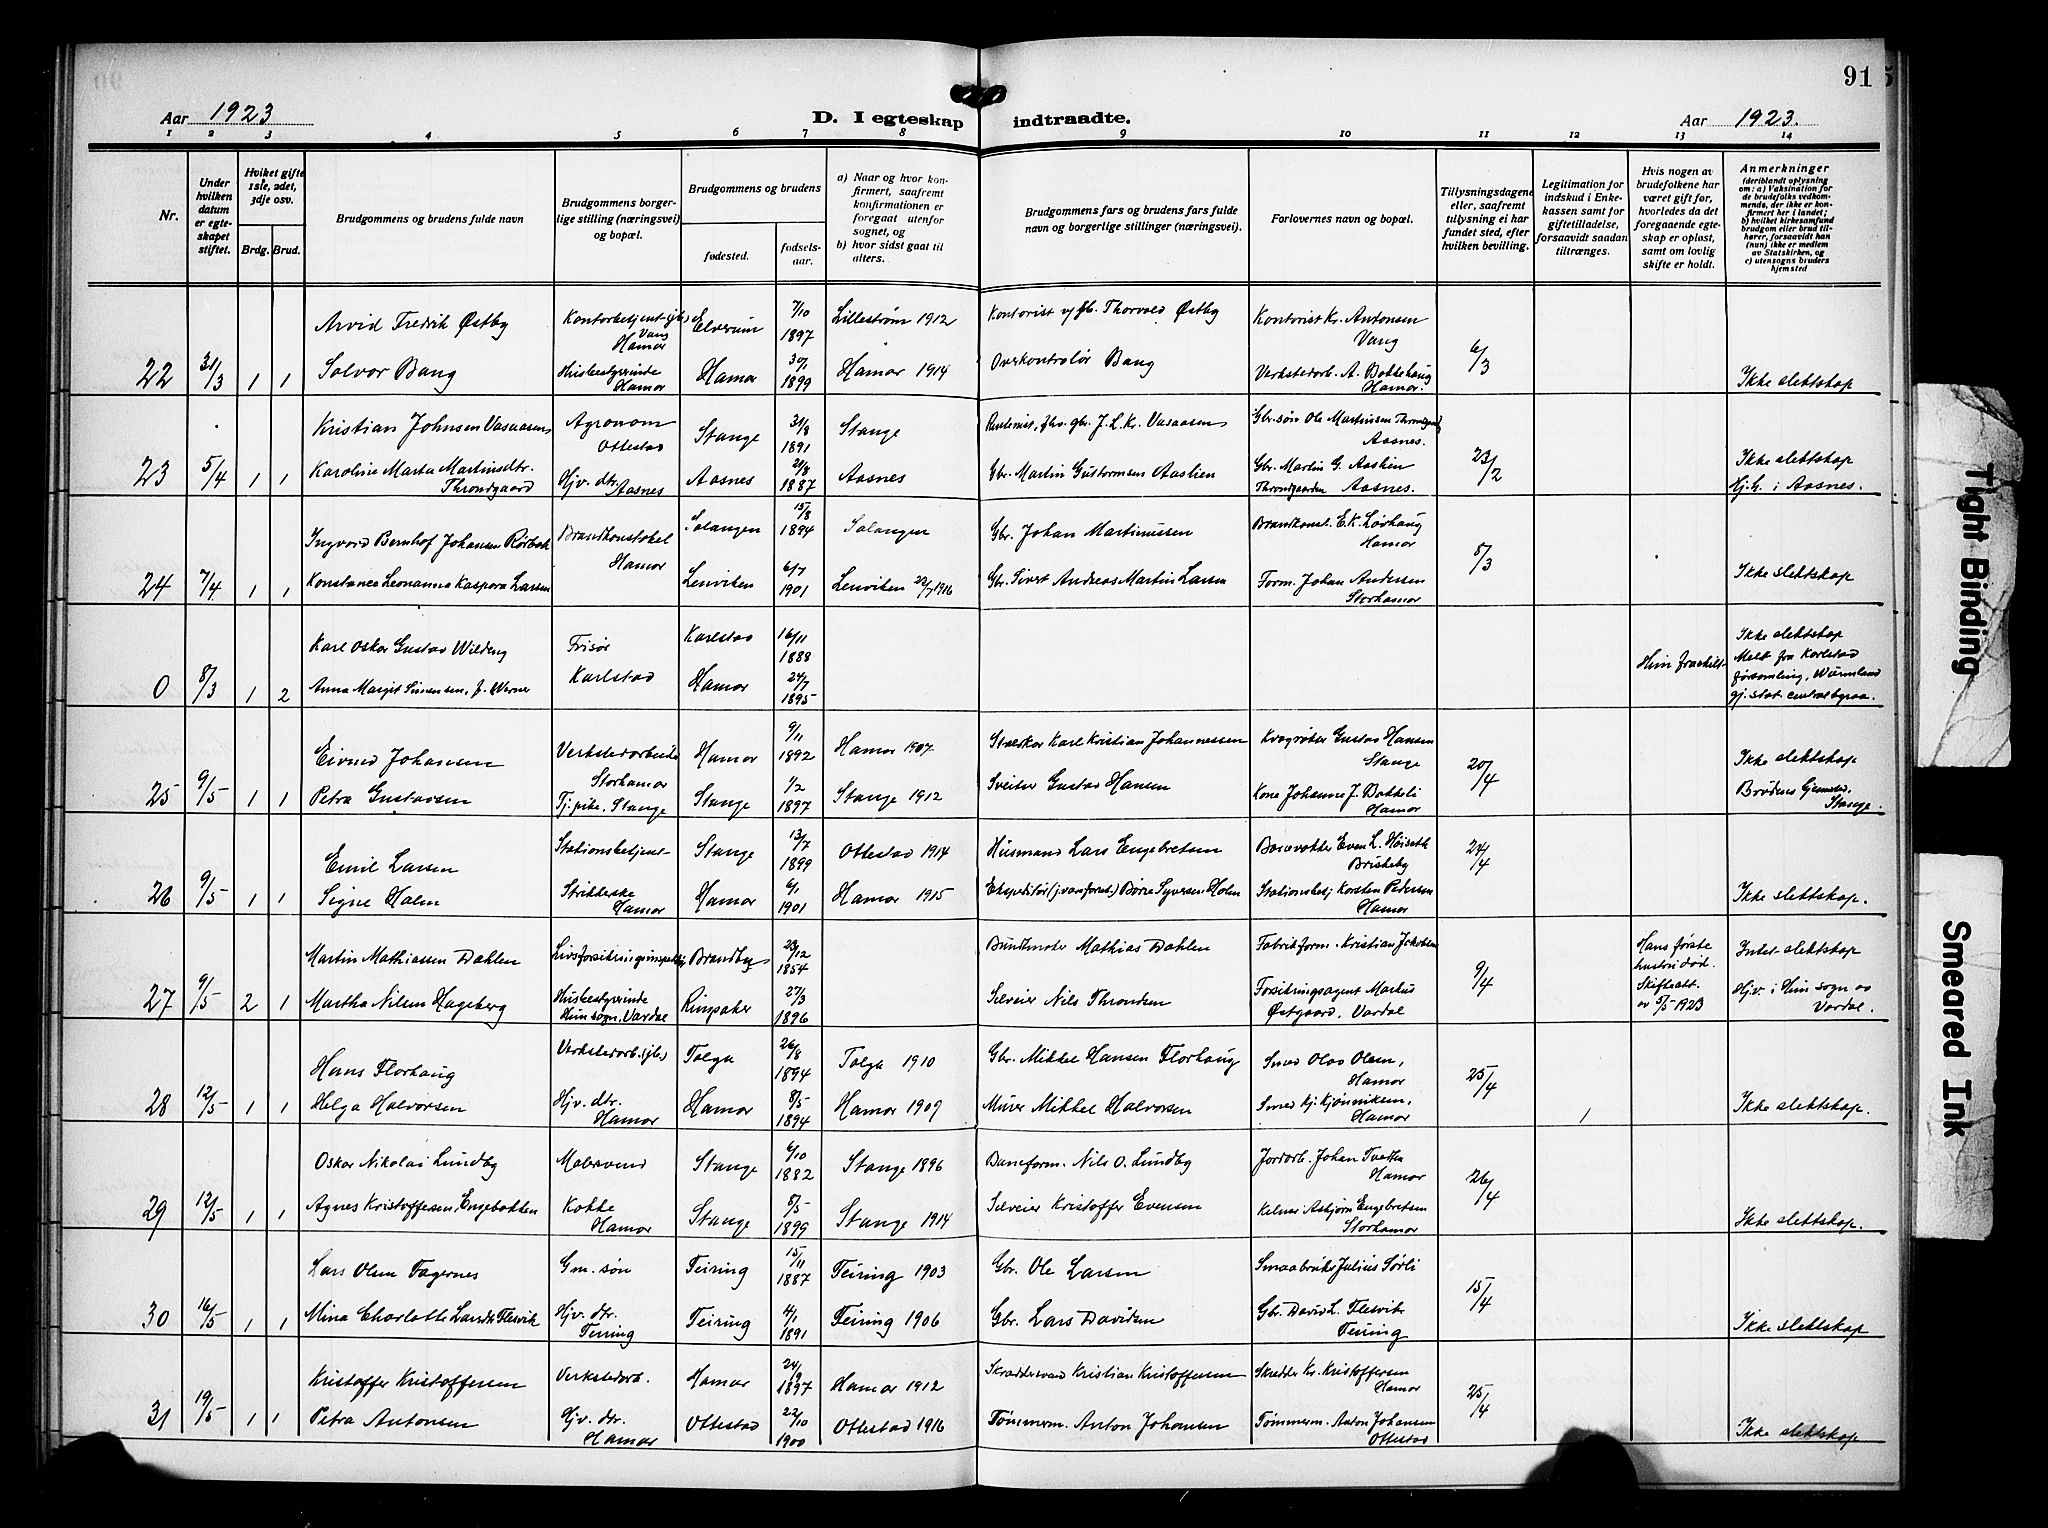 91
Aar 1923
D. I egteskap indtraadte.
Aar 1923.
1 2 3 4 5 6 7 8 9 10 11 12 13 14
Nr.
Under hvilken datum er egteskapet stiftet.
Hvilket gifte 1ste, 2det, 3dje osv.
Brdg. Brud.
Brudgommens og brudens fulde navn
Brudgommens borgerlige stilling (næringsvei) og bopæl.
Brudgommens og brudens
fødested.
fødselsaar.
a) Naar og hvor konfirmert, saafremt konfirmationen er foregaat utenfor sognet, og
b) hvor sidst gaat til alters.
Brudgommens fars og brudens fars fulde navn og borgerlige stillinger (næringsvei).
Forlovernes navn og bopæl.
Tillysningsdagene eller, saafremt tillysning ei har fundet sted, efter hvilken bevilling.
Legitimation for indskud i Enkekassen samt for giftetilladelser, forsaavidt saadan tiltrænges.
Hvis nogen av brudefolkene har været gift før, hvorledes da det foregaaende egteskap er opløst, samt om lovlig skifte er holdt.
Anmerkninger
(deriblandt oplysning om: a) Vaksination for de brudefolks vedkommende, der ikke er konfirmert her i landet; b) hvilket kirkesamfund brudgom eller brud tilhører, forsaavidt han (hun) ikke er medlem av Statskirken, og c) utensogns bruders hjemsted
Arvid Fredrik Østby Kontorbetjent (jb.) Vang Hamar Elverum 7/10 1897 Lillestrøm 1912 Kontorist v/jb. Thorvald Østby Kontorist Kr. Antonsen Vang
22 31/3 1 1 Solvor Bang Husbestyrerinde Hamar Hamar 30/1 1899 Hamar 1914 Overkontrolør Bang Verkstedarb. A. Bakkehaug Hamar. 6/3 Ikke slektskap
Kristian Johnsen Vasaasen Agronom Ottestad Stange 31/8 1891 Stange J. L. Kr. Vasaasen Gbr. søn Ole Martinsen Throndgaard Aasnes.
23 5/4 1 1 Karoline Marta Martinsdtr. Throndgaard Hjv. dtr. Aasnes Aasnes 21/8 1887 Aasnes Gbr. Martin Guttormsen Aaslien Gbr. Martin G. Aaslien Throndgaarden Aasnes. 23/2 Ikke slektskap Hj.h. i Aasnes.
Ingvard Bernhof Johansen Rørbak Brandkonstabel Hamar Salangen 15/8 1894 Salangen Gbr. Johan Martinussen Brandkonst. E. K. Løvhaug Hamar
24 7/4 1 1 Konstance Leonanna Kaspara Larsen Lenviken 6/7 1901 Lenviken 22/7 1916 Gbr. Sivert Andreas Martin Larsen Form. Johan Andersen Storhamar 8/3 Ikke slektskap
Karl Oskar Gustav Wildeng Frisør Karlstad Karlstad 16/11 1888
0 8/3 1 2 Anna Margit Simensen, f. Werner Hamar 24/7 1895 Hun fraskilt Ikke slektskap Melt fra Karlstad församling, Wärmland gj. stat. centralbyraa.
Eivind Johansen Verkstedarbeider Storhamar Hamar 9/11 1892 Hamar 1907 Karl Kristian Johannessen Gustav Hansen Stange
25 9/5 1 1 Petra Gustavsen Tj. pike, Stange Stange 1/2 1897 Stange 1912 Sveiser Gustav Hansen Kone Johanne J. Bakkeli Hamar 20/4 Ikke slektskap Brudens hjemsted. Stange.
Emil Larsen Stationsbetjent Stange 13/7 1899 Ottestad 1914 Husmand Lars Engebretsen Banevokter Even L. Høiseth Briskeby
26 9/5 1 1 Signe Holm Strikkerske Hamar Hamar 6/1 1901 Hamar 1915 Ekspeditør (jernvaneforret.) Børre Syversen Holm Stationsbetj Karsten Pedersen Hamar 24/4 Ikke slektskap.
Martin Mathiassen Dahlen Livsforsikringsinspektør Brandbu 23/12 1854 Buntmaker Mathias Dahlen Fabrikform. Kristian Jakobsen
27 9/5 2 1 Martha Nilsen Hageberg Husbestyrerinde Hunsogn, Vardal Ringsaker 27/3 1896 Selveier Nils Throndsen Forsikringsagent Martin Østgaard, Vardal 9/4 Hans første hustru død. Skifteatt. av 5/5 1923 Intet slektskap Hjv. i Hun sogn av Vardal.
Hans Florhaug Verkstedarb. (jb.) Tolga 26/8 1894 Tolga 1910 Gbr. Mikkel Hansen Florhaug Smed Olav Olsen, Hamar
28 12/5 1 1 Helga Halvorsen Hjv. dtr. Hamar Hamar 8/5 1894 Hamar 1909 Murer Mikkel Halvorsen Smed Hj. Kjønniksen, Hamar 25/4 1 Ikke slektskap.
Oskar Nikolai Lundby Møbelsnd Stange 6/10 1882 Stange 1896 Baneform. Nils O. Lundby Jordarb. Johan Tveter Hamar
29 12/5 1 1 Agnes Kristoffersen, Engebakken Kokke Hamar Stange 8/5 1899 Stange 1914 Selveier Kristoffer Evensen Kelner Asbjørn Engebretsen Storhamar 26/4 Ikke slektskap.
Lars Olsen Fagernes Gm. søn Feiring 15/11 1887 Feiring 1903 Gbr. Ole Larsen Smaabruker Julius Sørli
30 16/5 1 1 Mina Charlotte Larsdtr Flesvik Hjv. dtr. Feiring Feiring 4/1 1891 Feiring 1906 Gbr. Lars Davidsen Gbr. David L. Flesvik Feiring 15/4 Ikke slektskap
Kristoffer Kristoffersen Verkstedarb. Hamar 24/9 1897 Hamar 1912 Skræddersvend Kristian Kristoffersen Skredder Kr. Kristoffersen Hamar
31 19/5 1 1 Petra Antonsen Hjv. dtr. Hamar Ottestad 22/10 1900 Ottestad 1916 Tømmerm. Anton Johansen Tømmerm. Anton Johansen Ottestad 25/4 Ikke slektskap
Tight Binding
Smeared Ink